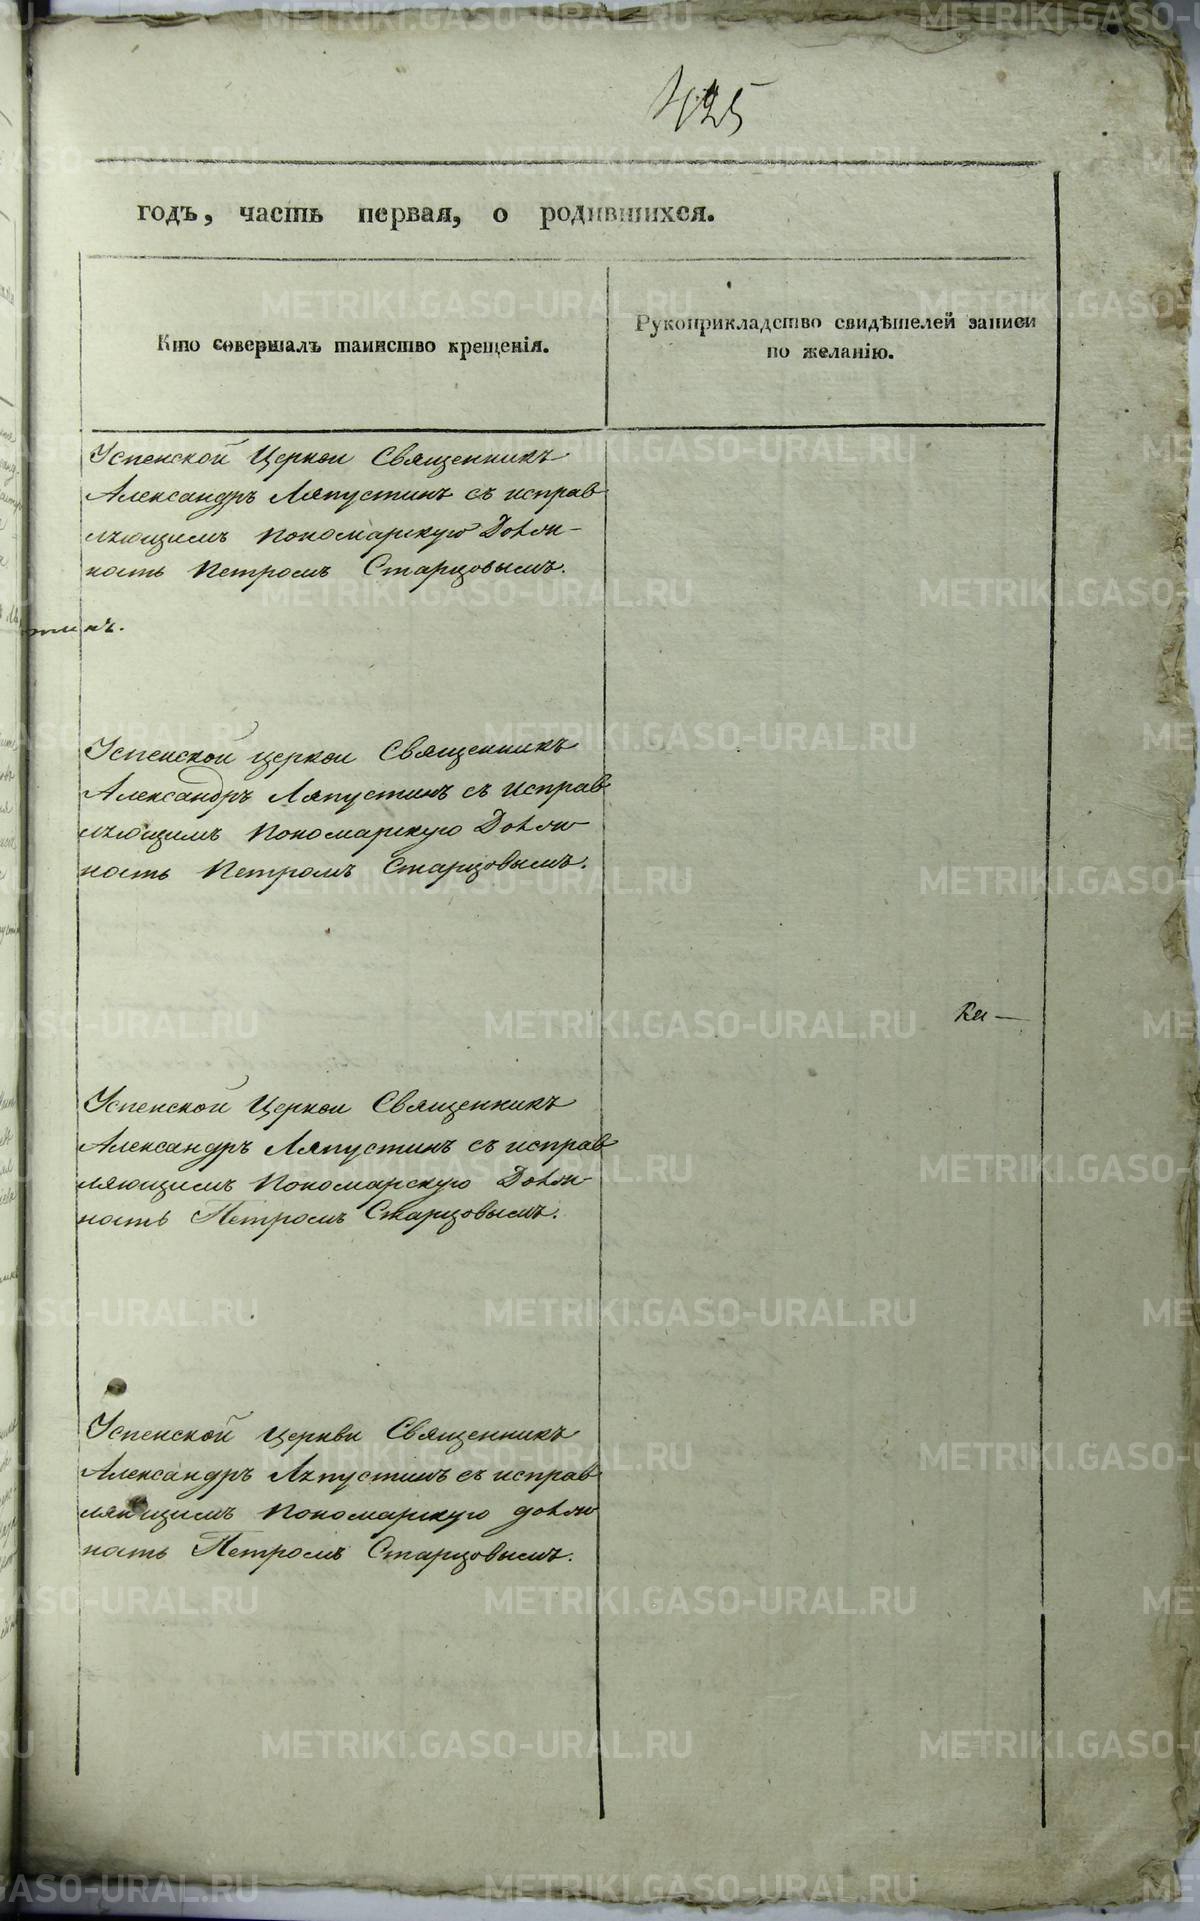 425
годъ, часть первая, о родившихся.
Кто совершалъ таинство крещенія.
Рукоприкладство свидѣтелей записи
по желанію.
Успенской Церкви Священникъ
Александръ Ляпустинъ съ исправ
ляющимъ Пономарскую Долж-
ность Петромъ Старцовымъ.
тинъ.
Успенской церкви Священникъ
Александръ Ляпустинъ съ исправ
ляющимъ Пономарскую Долж
ность Петромъ Старцовымъ.
Ка—
Успенской Церкви Священникъ
Александръ Ляпустинъ съ исправ
ляющимъ Пономарскую Долж-
ность Петромъ Старцовымъ.
Успенской Церкви Священникъ
Александръ Ляпустинъ съ исправ
ляющимъ Пономарскую долж
ность Петромъ Старцовымъ.
METRIKI.GASO-URAL.RU